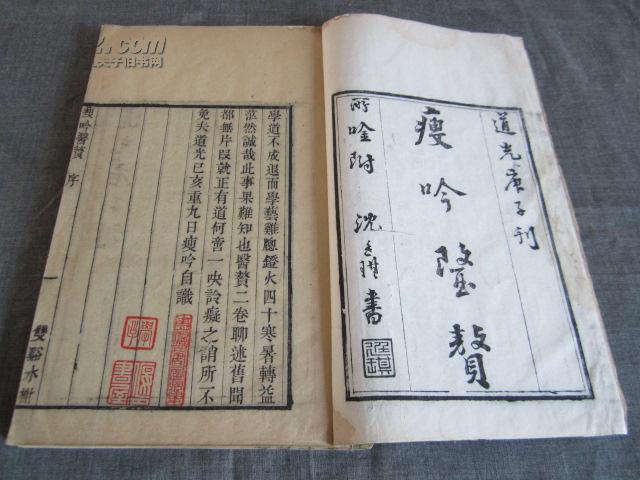 道光庚子刊
瘦吟醫贅
所唫附 沈 書
學道不成退而學藝雞聰鐙火四十寒暑轉益
茫然誠哉此事果難知也醫贅二卷聊述舊聞
都無片段就正有道何啻一吷詅癡之誚所不
免夫道光已亥重九日瘦吟自識
瘦吟醫贅 序 一 雙谿水榭
.com
夫子旧书网